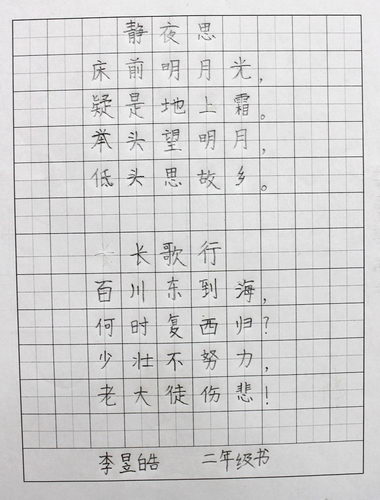 静夜思
床前明月光，
疑是地上霜。
举头望明月，
低头思故乡。
长歌行
百川东到海，
何时复西归？
少壮不努力，
老大徒伤悲！
李昱皓 二年级书